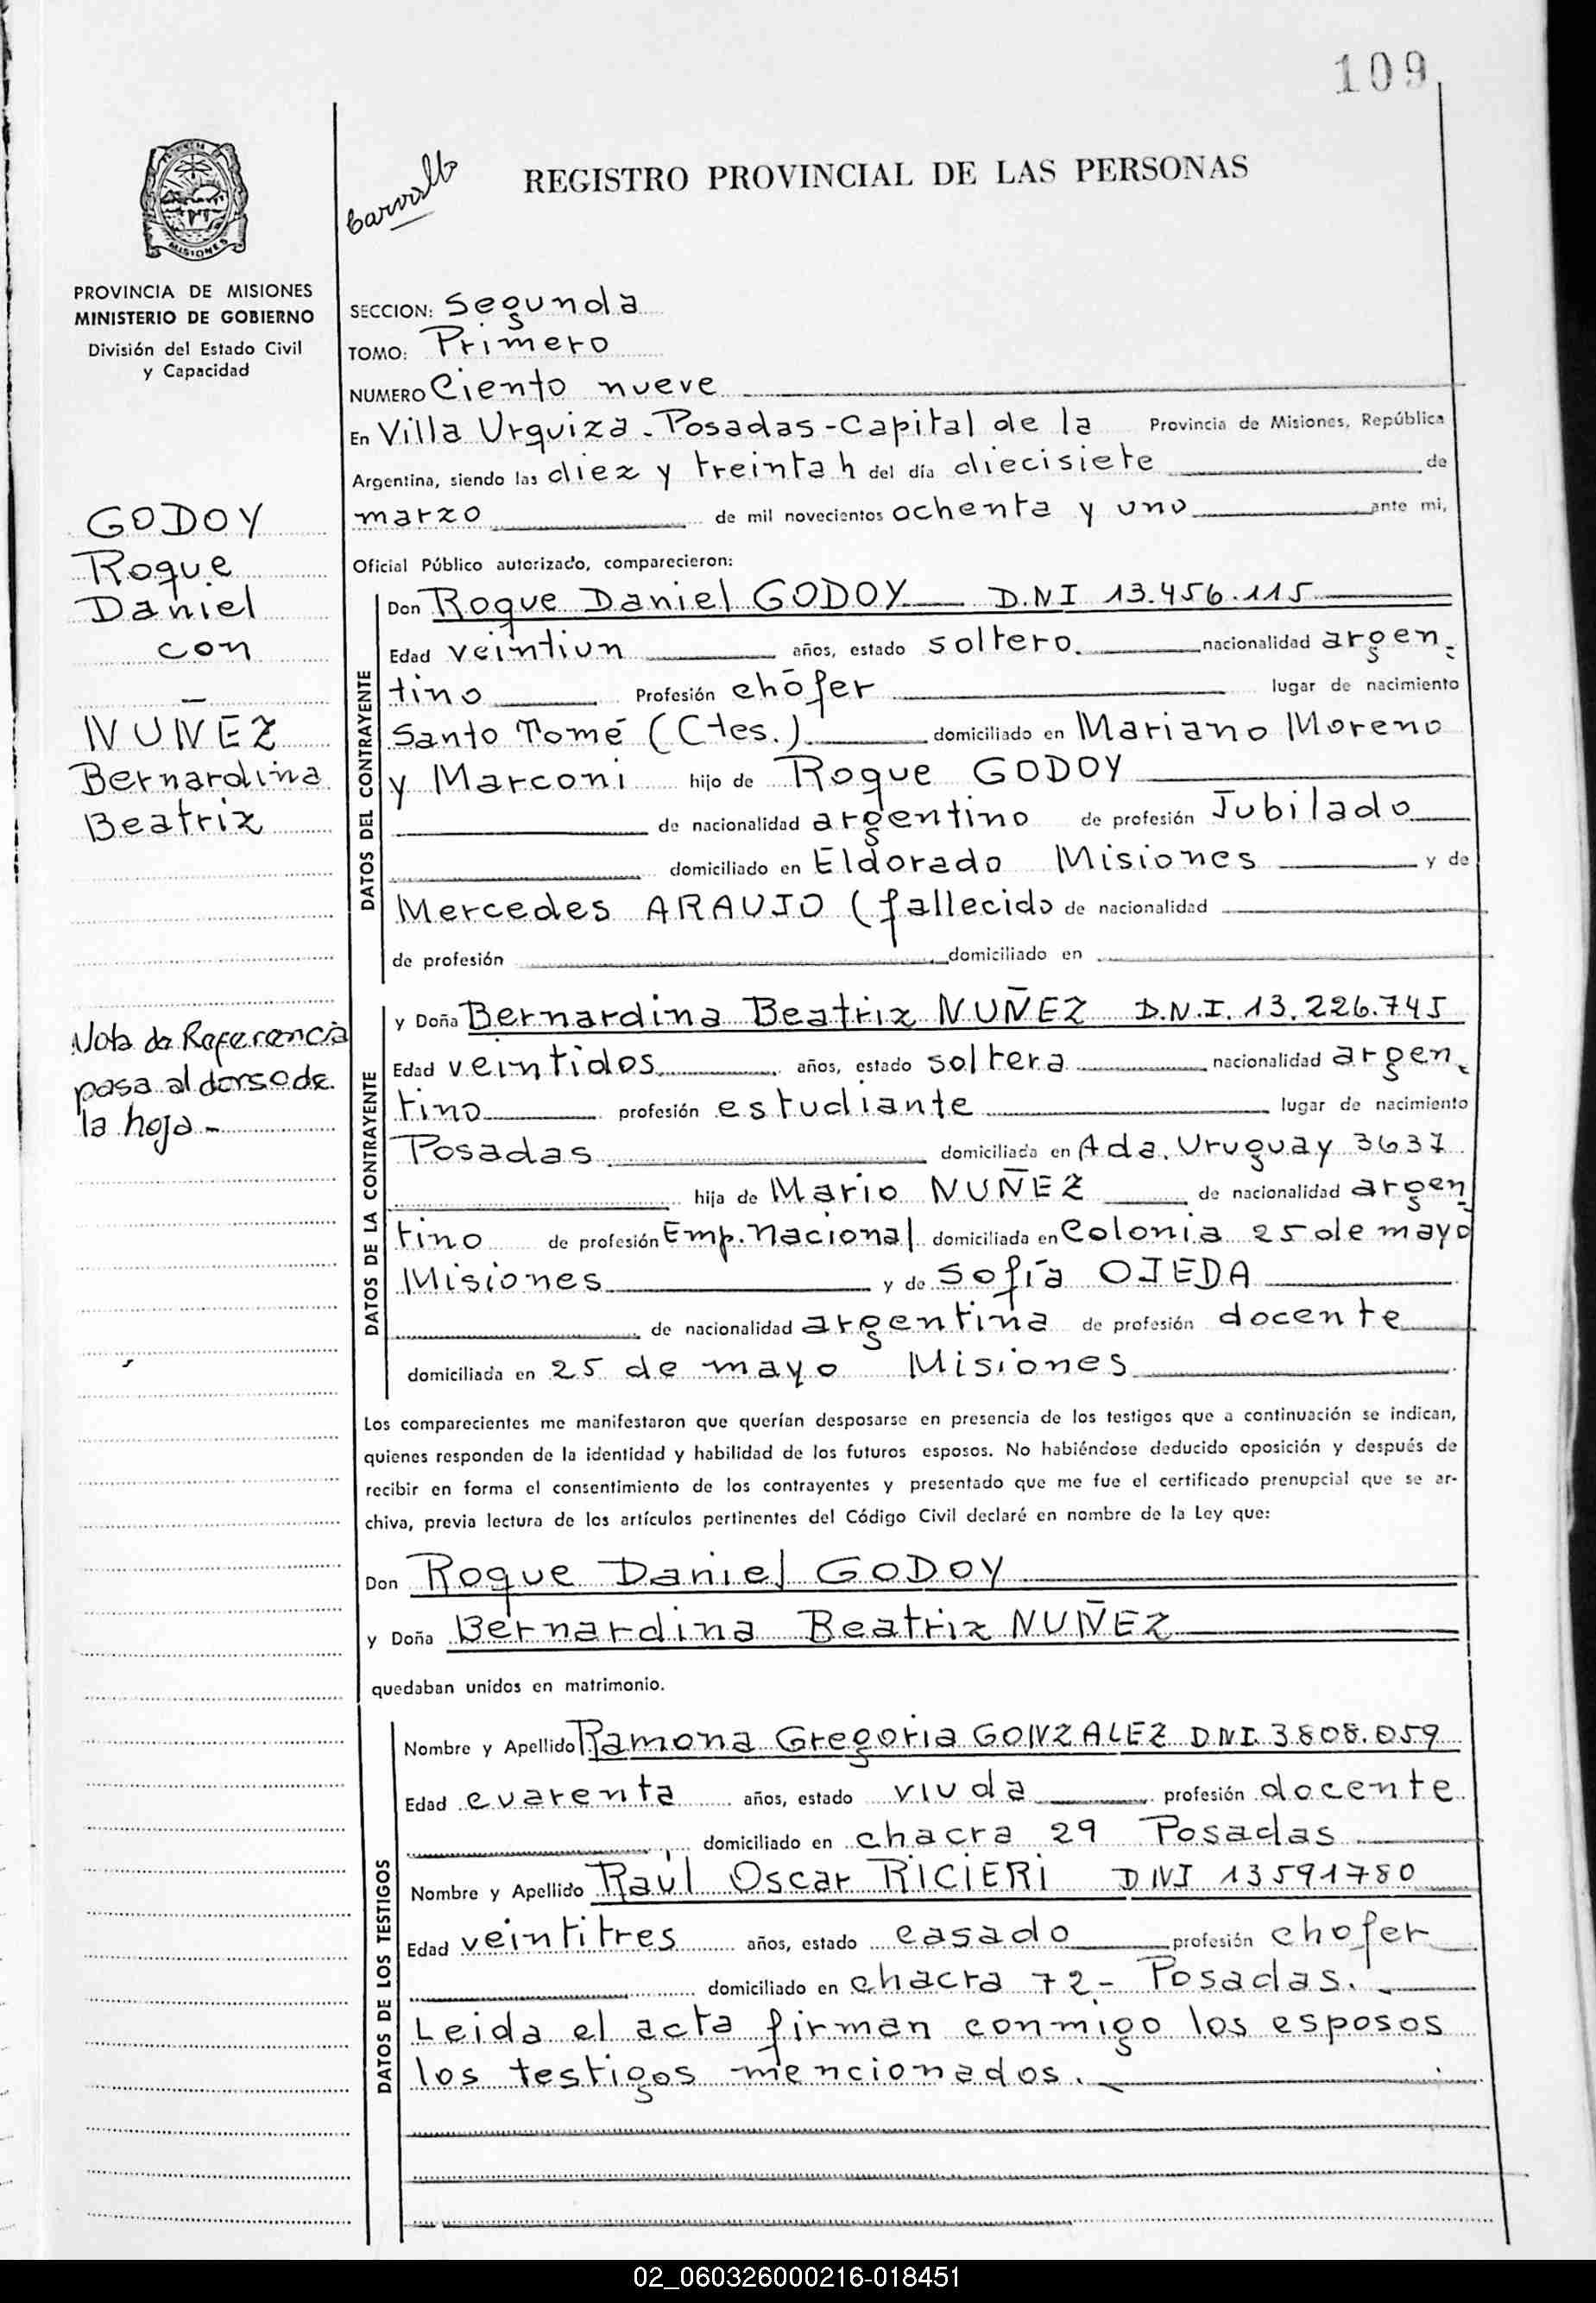 109
REGISTRO PROVINCIAL DE LAS PERSONAS
MISIONES
PROVINCIA DE MISIONES
MINISTERIO DE GOBIERNO
División del Estado Civil
y Capacidad
SECCION: Segunda
TOMO: Primero
NUMERO Ciento nueve
En Villa Urquiza - Posadas - Capital de la Provincia de Misiones, República
Argentina, siendo las diez y treinta h del día diecisiete de
marzo de mil novecientos ochenta y uno ante mi,
Oficial Público autorizado, comparecieron:
GODOY
Roque
Daniel
con
NUÑEZ
Bernardina
Beatriz
Nota de Referencia
pasa al dorso de
la hoja -
DATOS DEL CONTRAYENTE
Don Roque Daniel GODOY D.N.I 13.456.115
Edad veintiun años, estado soltero. nacionalidad argen-
tino Profesión chófer lugar de nacimiento
Santo Tomé (Ctes.) domiciliado en Mariano Moreno
y Marconi hijo de Roque GODOY
de nacionalidad argentino de profesión Jubilado
domiciliado en Eldorado Misiones y de
Mercedes ARAUJO (fallecido de nacionalidad
de profesión domiciliado en
DATOS DE LA CONTRAYENTE
y Doña Bernardina Beatriz NUÑEZ D.N.I. 13.226.745
Edad veintidos años, estado soltera nacionalidad argen-
tino profesión estudiante lugar de nacimiento
Posadas domiciliada en Ada. Uruguay 3637
hija de Mario NUÑEZ de nacionalidad argen-
tino de profesión Emp. Nacional domiciliada en Colonia 25 de mayo
Misiones y de Sofía OJEDA
de nacionalidad argentina de profesión docente
domiciliada en 25 de mayo Misiones
Los comparecientes me manifestaron que querían desposarse en presencia de los testigos que a continuación se indican,
quienes responden de la identidad y habilidad de los futuros esposos. No habiéndose deducido oposición y después de
recibir en forma el consentimiento de los contrayentes y presentado que me fue el certificado prenupcial que se ar-
chiva, previa lectura de los artículos pertinentes del Código Civil declaré en nombre de la Ley que:
Don Roque Daniel GODOY
y Doña Bernardina Beatriz NUÑEZ
quedaban unidos en matrimonio.
DATOS DE LOS TESTIGOS
Nombre y Apellido Ramona Gregoria GONZALEZ DNI. 3808.059
Edad cuarenta años, estado viuda profesión docente
domiciliado en chacra 29 Posadas
Nombre y Apellido Raúl Oscar RICIERI DNI 13591780
Edad veintitres años, estado casado profesión chofer
domiciliado en chacra 72 - Posadas.
Leida el acta firman conmigo los esposos
los testigos mencionados.
02_060326000216-018451